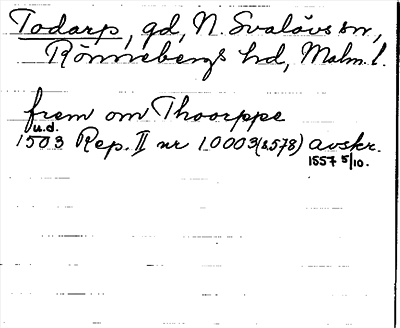 Todarp, gd, N. Svalövs sn,
Rönnebergs hd, Malm. l.
frem om Thoorppe
u.d.
1503 Rep. II nr 10003 (s.578) avskr.
1557 5/10.